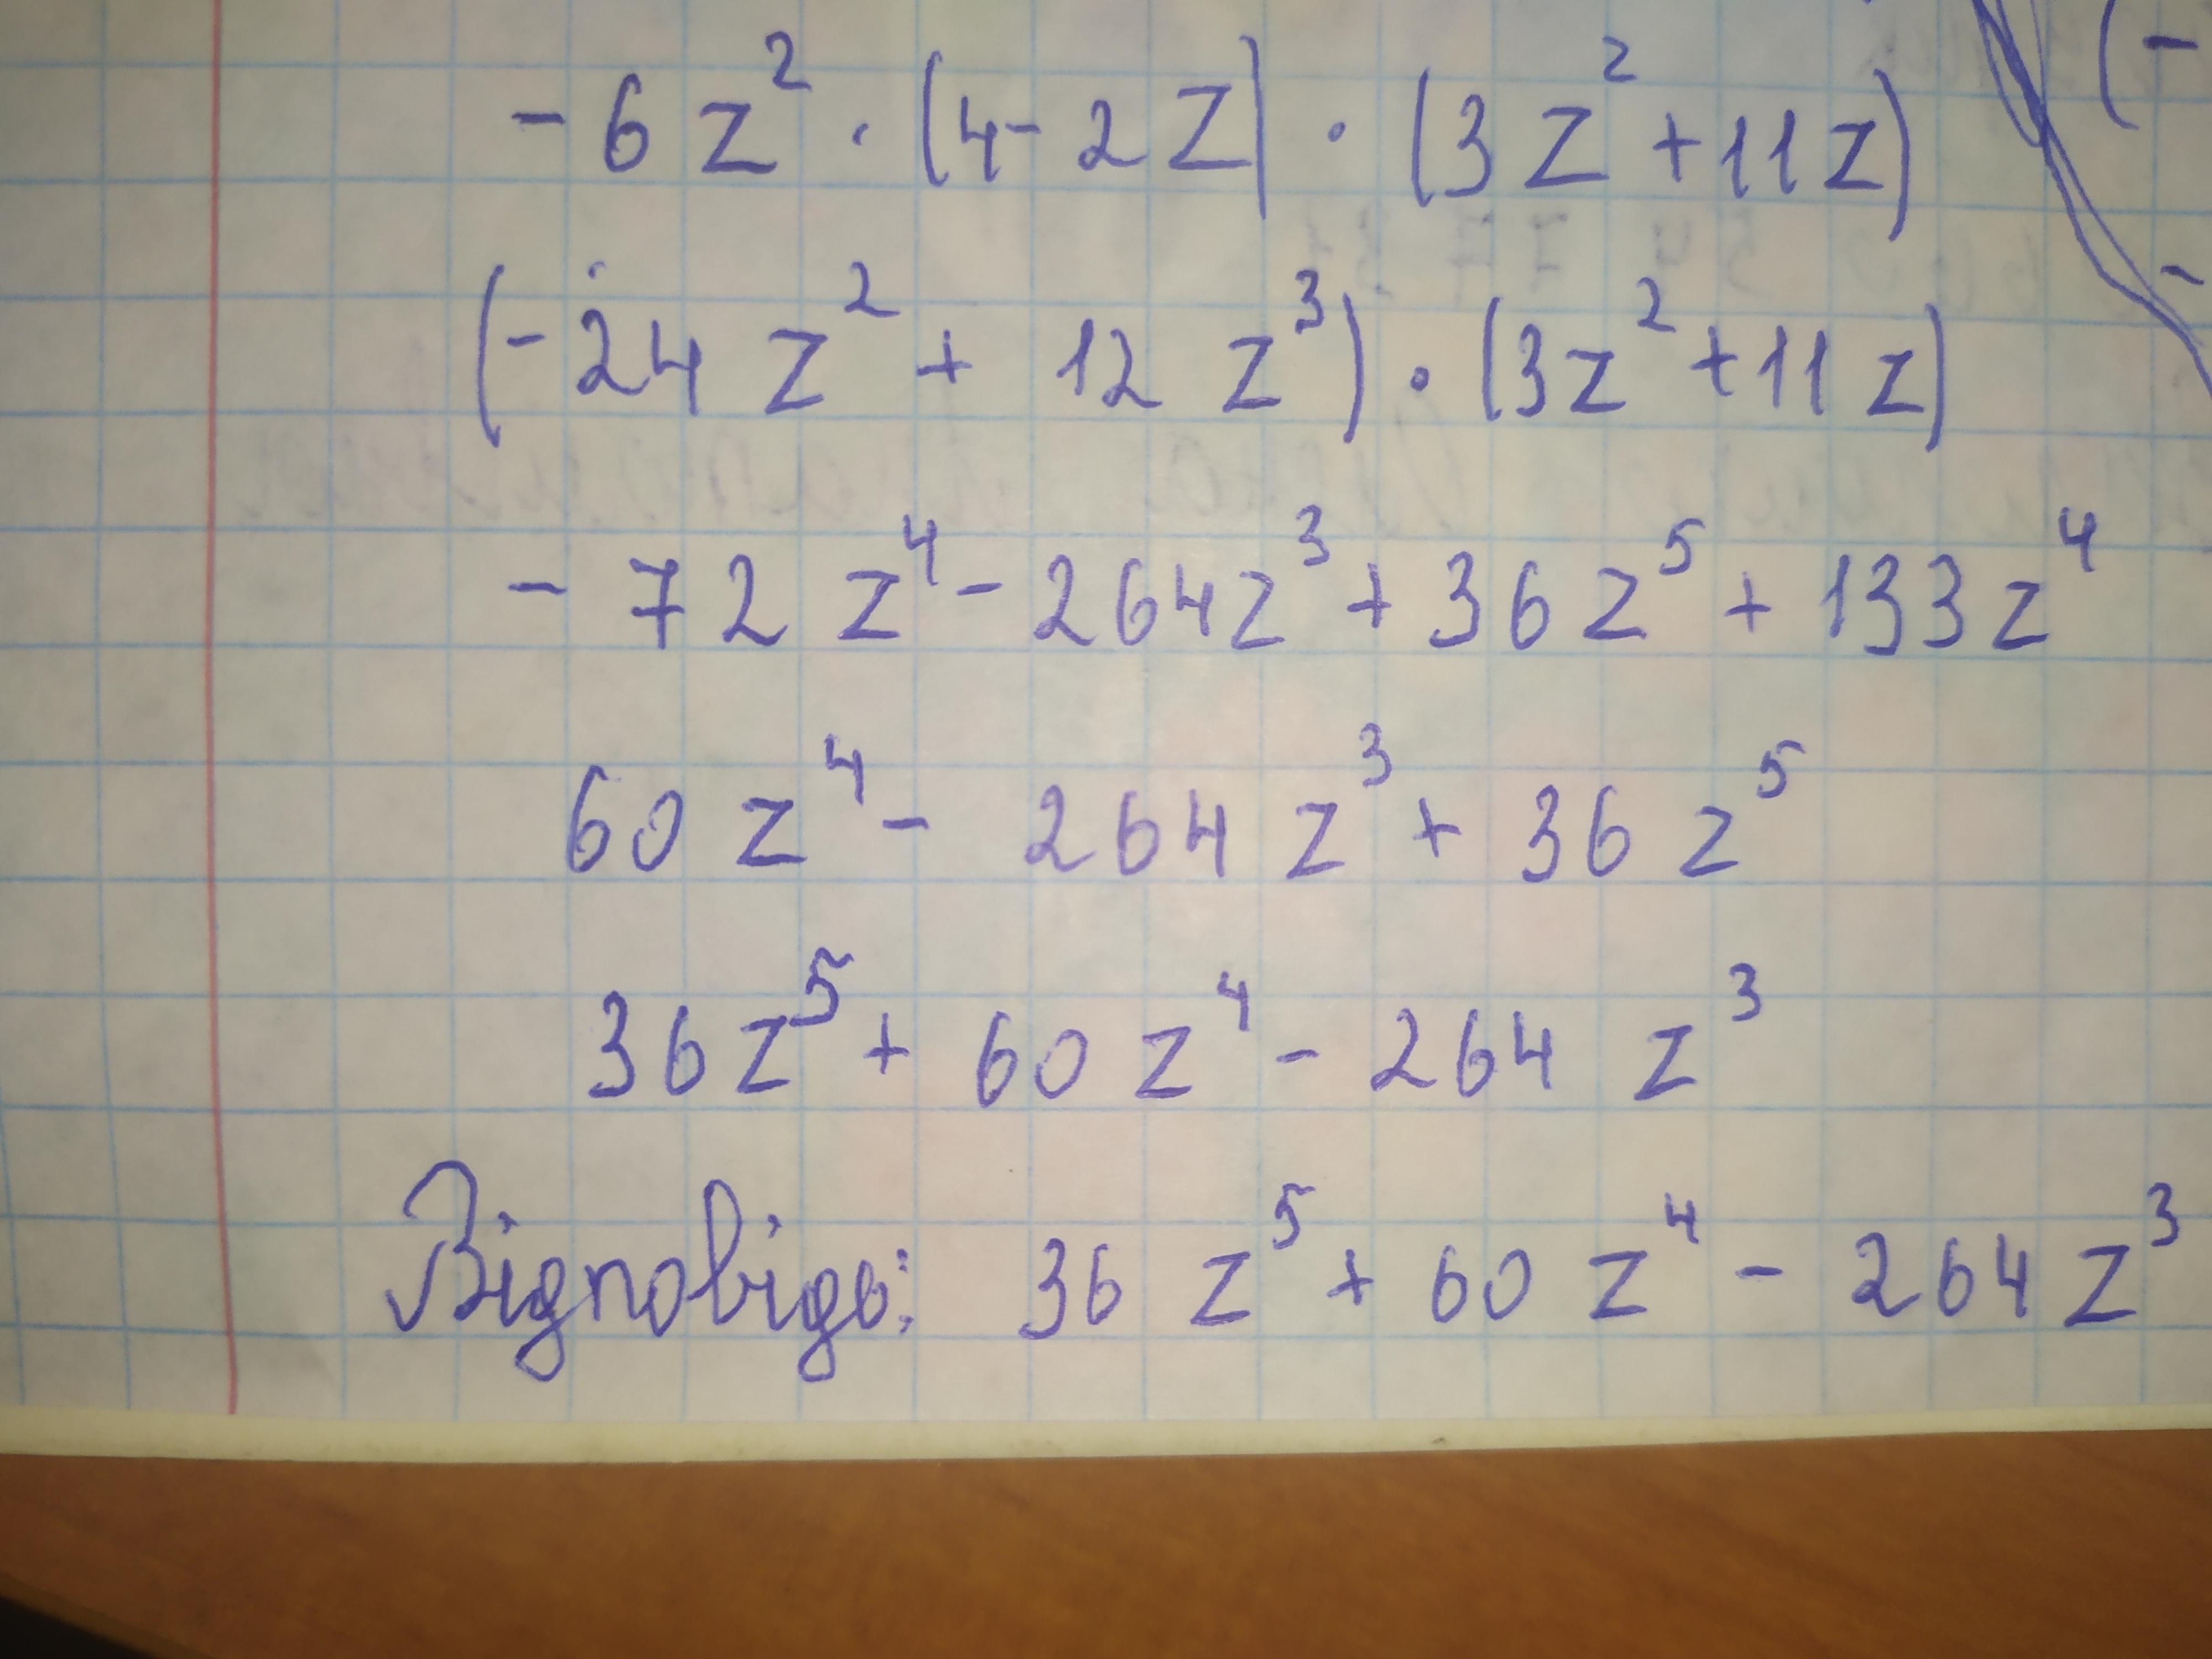 -6z² · (4-2z) · (3z²+11z)
(-24z² + 12z³) · (3z²+11z)
-72z⁴ - 264z³ + 36z⁵ + 133z⁴
60z⁴ - 264z³ + 36z⁵
36z⁵ + 60z⁴ - 264z³
Відповідь: 36z⁵ + 60z⁴ - 264z³